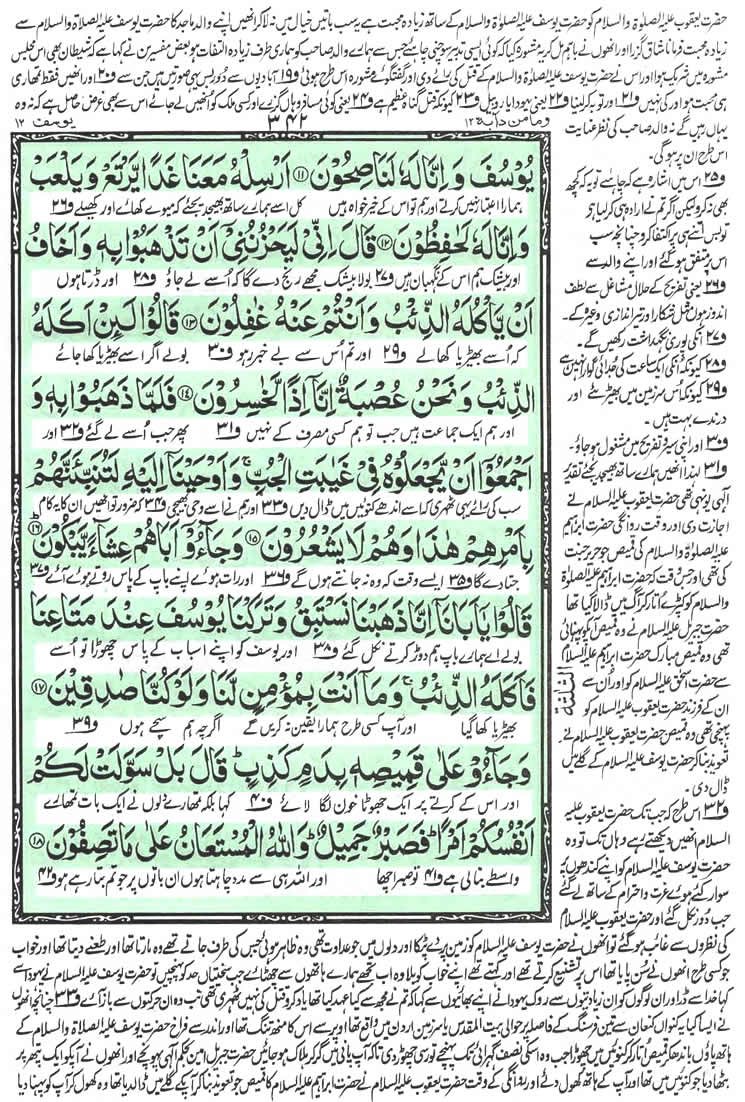 حضرت یعقوب علیہ الصلوٰۃ والسلام کو حضرت یوسف علیہ الصلوٰۃ والسلام کے ساتھ زیادہ محبت ہے یہ سب باتیں خیال میں نہ لاکر انھیں اپنے والد ماجد کا حضرت یوسف علیہ الصلاۃ والسلام سے
زیادہ محبت فرمانا شاق گزرا اور انھوں نے باہم مل کر یہ مشورہ کیا کہ کوئی ایسی تدبیر سوچنی چاہئے جس سے ہمارے والد صاحب کو ہماری طرف زیادہ التفات ہو بعض مفسرین نے کہا ہے کہ شیطان بھی اس مجلس
مشورہ میں شریک ہوا اور اس نے حضرت یوسف علیہ الصلاۃ والسلام کے قتل کی رائے دی اور گفتگوئے مشورہ اس طرح ہوئی و۱۹ آبادیوں سے دور بس یہی صورتیں ہیں جن سے و۲۰ اور انھیں فقط تمھاری
ہی محبت ہو اور کی نہیں و۲۱ اور توبہ کر لینا و۲۲ یعنی یہودا یا روبیل و۲۳ کیونکہ قتل گناہ عظیم ہے و۲۴ یعنی کوئی مسافر وہاں گزرے اور کسی ملک کو انھیں لے جائے اس سے بھی غرض حاصل ہے کہ نہ وہ
یہاں رہیں گے نہ والد صاحب کی نظر عنایت
اس طرح ان پر ہوگی۔
وما من دابة ۱۲
۳۴۲
یوسف ۱۲
يُوْسُفَ وَ اِنَّا لَهٗ لَنَاصِحُوْنَ ۝۱۱ اَرْسِلْهُ مَعَنَا غَدًا يَّرْتَعْ وَ يَلْعَبْ
ہمارا اعتبار نہیں کرتے اور ہم تو اس کے خیر خواہ ہیں کل اسے ہمارے ساتھ بھیج دیجئے کہ میوے کھائے اور کھیلے و۲۶
وَ اِنَّا لَهٗ لَحٰفِظُوْنَ ۝۱۲ قَالَ اِنِّیْ لَيَحْزُنُنِیْۤ اَنْ تَذْهَبُوْا بِهٖ وَ اَخَافُ
اور بیشک ہم اس کے نگہبان ہیں و۲۷ بولا بیشک مجھے رنج دے گا کہ اسے لے جاؤ و۲۸ اور ڈرتا ہوں
اَنْ يَّاْكُلَهُ الذِّئْبُ وَ اَنْتُمْ عَنْهُ غٰفِلُوْنَ ۝۱۳ قَالُوْا لَىِٕنْ اَكَلَهُ
کہ اسے بھیڑیا کھا لے و۲۹ اور تم اس سے بے خبر رہو و۳۰ بولے اگر اسے بھیڑیا کھا جائے
الذِّئْبُ وَ نَحْنُ عُصْبَةٌ اِنَّاۤ اِذًا لَّخٰسِرُوْنَ ۝۱۴ فَلَمَّا ذَهَبُوْا بِهٖ وَ
اور ہم ایک جماعت ہیں جب تو ہم کسی مصرف کے نہیں و۳۱ پھر جب اسے لے گئے و۳۲ اور
اَجْمَعُوْۤا اَنْ يَّجْعَلُوْهُ فِیْ غَيٰبَتِ الْجُبِّ ۚ وَ اَوْحَيْنَاۤ اِلَيْهِ لَتُنَبِّئَنَّهُمْ
سب کی رائے یہی ٹھہری کہ اسے اندھے کنوئیں میں ڈال دیں و۳۳ اور ہم نے اسے وحی بھیجی و۳۴ کہ ضرور تو انھیں ان کا یہ کام
بِاَمْرِهِمْ هٰذَا وَ هُمْ لَا يَشْعُرُوْنَ ۝۱۵ وَ جَآءُوْۤ اَبَاهُمْ عِشَآءً يَّبْكُوْنَ ۝۱۶
جتا دے گا و۳۵ ایسے وقت کہ وہ نہ جانتے ہوں گے و۳۶ اور رات ہوئے اپنے باپ کے پاس روتے ہوئے آئے و۳۷
قَالُوْا يٰۤاَبَانَاۤ اِنَّا ذَهَبْنَا نَسْتَبِقُ وَ تَرَكْنَا يُوْسُفَ عِنْدَ مَتَاعِنَا
بولے اے ہمارے باپ ہم دوڑ کرتے نکل گئے و۳۸ اور یوسف کو اپنے اسباب کے پاس چھوڑا تو اسے
فَاَكَلَهُ الذِّئْبُ ۚ وَ مَاۤ اَنْتَ بِمُؤْمِنٍ لَّنَا وَ لَوْ كُنَّا صٰدِقِيْنَ ۝۱۷
بھیڑیا کھا گیا اور آپ کسی طرح ہمارا یقین نہ کریں گے اگرچہ ہم سچے ہوں و۳۹
وَ جَآءُوْ عَلٰى قَمِيْصِهٖ بِدَمٍ كَذِبٍ ؕ قَالَ بَلْ سَوَّلَتْ لَكُمْ
اور اس کے کرتے پر ایک جھوٹا خون لگا لائے و۴۰ کہا بلکہ تمھارے دلوں نے ایک بات تمھارے
اَنْفُسُكُمْ اَمْرًا ؕ فَصَبْرٌ جَمِيْلٌ ؕ وَ اللّٰهُ الْمُسْتَعَانُ عَلٰى مَا تَصِفُوْنَ ۝۱۸
واسطے بنا لی ہے و۴۱ تو صبر اچھا اور اللہ ہی سے مدد چاہتا ہوں ان باتوں پر جو تم بتا رہے ہو و۴۲
و۲۵ اس میں اشارہ ہے کہ چاہئے تو یہ کہ کچھ
بھی نہ کرو لیکن اگر تم نے ارادہ ہی کر لیا ہو
تو بس اتنے ہی پر اکتفا کرو چنانچہ سب
اس پر متفق ہو گئے اور اپنے والد سے
و۲۶ یعنی تفریح کے حلال مشاغل سے لطف
اندوز ہوں مثل شکار اور تیر اندازی وغیرہ کے۔
و۲۷ انکی پوری نگہداشت رکھیں گے۔
و۲۸ کیونکہ انکی ایک ساعت کی جدائی گوارا نہیں ہے
و۲۹ کیونکہ اس سرزمین میں بھیڑیئے اور
درندے بہت ہیں۔
و۳۰ اور اپنی سیر و تفریح میں مشغول ہو جاؤ۔
و۳۱ لہٰذا انھیں ہمارے ساتھ بھیج دیجئے تقدیر
الٰہی یونہی تھی حضرت یعقوب علیہ السلام نے
اجازت دی اور وقت روانگی حضرت ابراہیم
علیہ الصلاۃ والسلام کی قمیص جو حریر جنت
کی تھی اور جس وقت کہ حضرت ابراہیم علیہ الصلوٰۃ
والسلام کو کپڑے اتار کر آگ میں ڈالا گیا تھا
حضرت جبریل علیہ السلام نے وہ قمیص آپکو پہنائی
تھی وہ قمیص مبارک حضرت ابراہیم علیہ السلام
سے حضرت اسحٰق علیہ السلام کو اور ان سے
ان کے فرزند حضرت یعقوب علیہ السلام کو
پہنچی تھی وہ قمیص حضرت یعقوب علیہ السلام نے
تعویذ بنا کر حضرت یوسف علیہ السلام کے گلے میں
ڈال دی۔
و۳۲ اس طرح کہ جب تک حضرت یعقوب علیہ
السلام انھیں دیکھتے رہے وہاں تک تو وہ
حضرت یوسف علیہ السلام کو اپنے کندھوں پر
سوار کئے ہوئے عزت و احترام کے ساتھ لے گئے
جب دور نکل گئے اور حضرت یعقوب علیہ السلام
کی نظروں سے غائب ہو گئے تو انھوں نے حضرت یوسف علیہ السلام کو زمین پر دے پٹکا اور دلوں میں جو عداوت تھی وہ ظاہر ہوئی جس کی طرف جاتے تھے وہ مارتا تھا اور طعنے دیتا تھا اور خواب
جو کسی طرح انھوں نے سن پایا تھا اس پر تشنیع کرتے تھے اور کہتے تھے اپنے خواب کو بلا وہ اب تجھے ہمارے ہاتھوں سے چھڑائے جب سختیاں حد کو پہنچیں تو حضرت یوسف علیہ السلام نے یہودا سے
کہا خدا سے ڈر اور ان لوگوں کو ان زیادتیوں سے روک یہودا نے اپنے بھائیوں سے کہا کہ تم نے مجھ سے کیا عہد کیا تھا یاد کرو قتل کی نہیں ٹھہری تھی تب وہ ان حرکتوں سے باز آئے و۳۳ چنانچہ انھوں
نے ایسا کیا یہ کنواں کنعان سے تین فرسنگ کے فاصلہ پر حوالی بیت المقدس یا سرزمین اردن میں واقع تھا اوپر سے اس کا منھ تنگ تھا اور اندر سے فراخ حضرت یوسف علیہ الصلاۃ والسلام کے
ہاتھ پاؤں باندھ کر قمیص اتار کر کنوئیں میں چھوڑا جب وہ اسکی نصف گہرائی تک پہنچے تو رسی چھوڑ دی تاکہ آپ پانی میں گر کر ہلاک ہو جائیں حضرت جبریل امین بحکم الٰہی پہونچے اور انھوں نے آپکو ایک پتھر پر
بٹھا دیا جو کنوئیں میں تھا اور آپ کے ہاتھ کھول دئے اور روانگی کے وقت حضرت یعقوب علیہ السلام نے حضرت ابراہیم علیہ السلام کا قمیص جو تعویذ بنا کر آپکے گلے میں ڈالدیا تھا وہ کھول کر آپ کو پہنا دیا